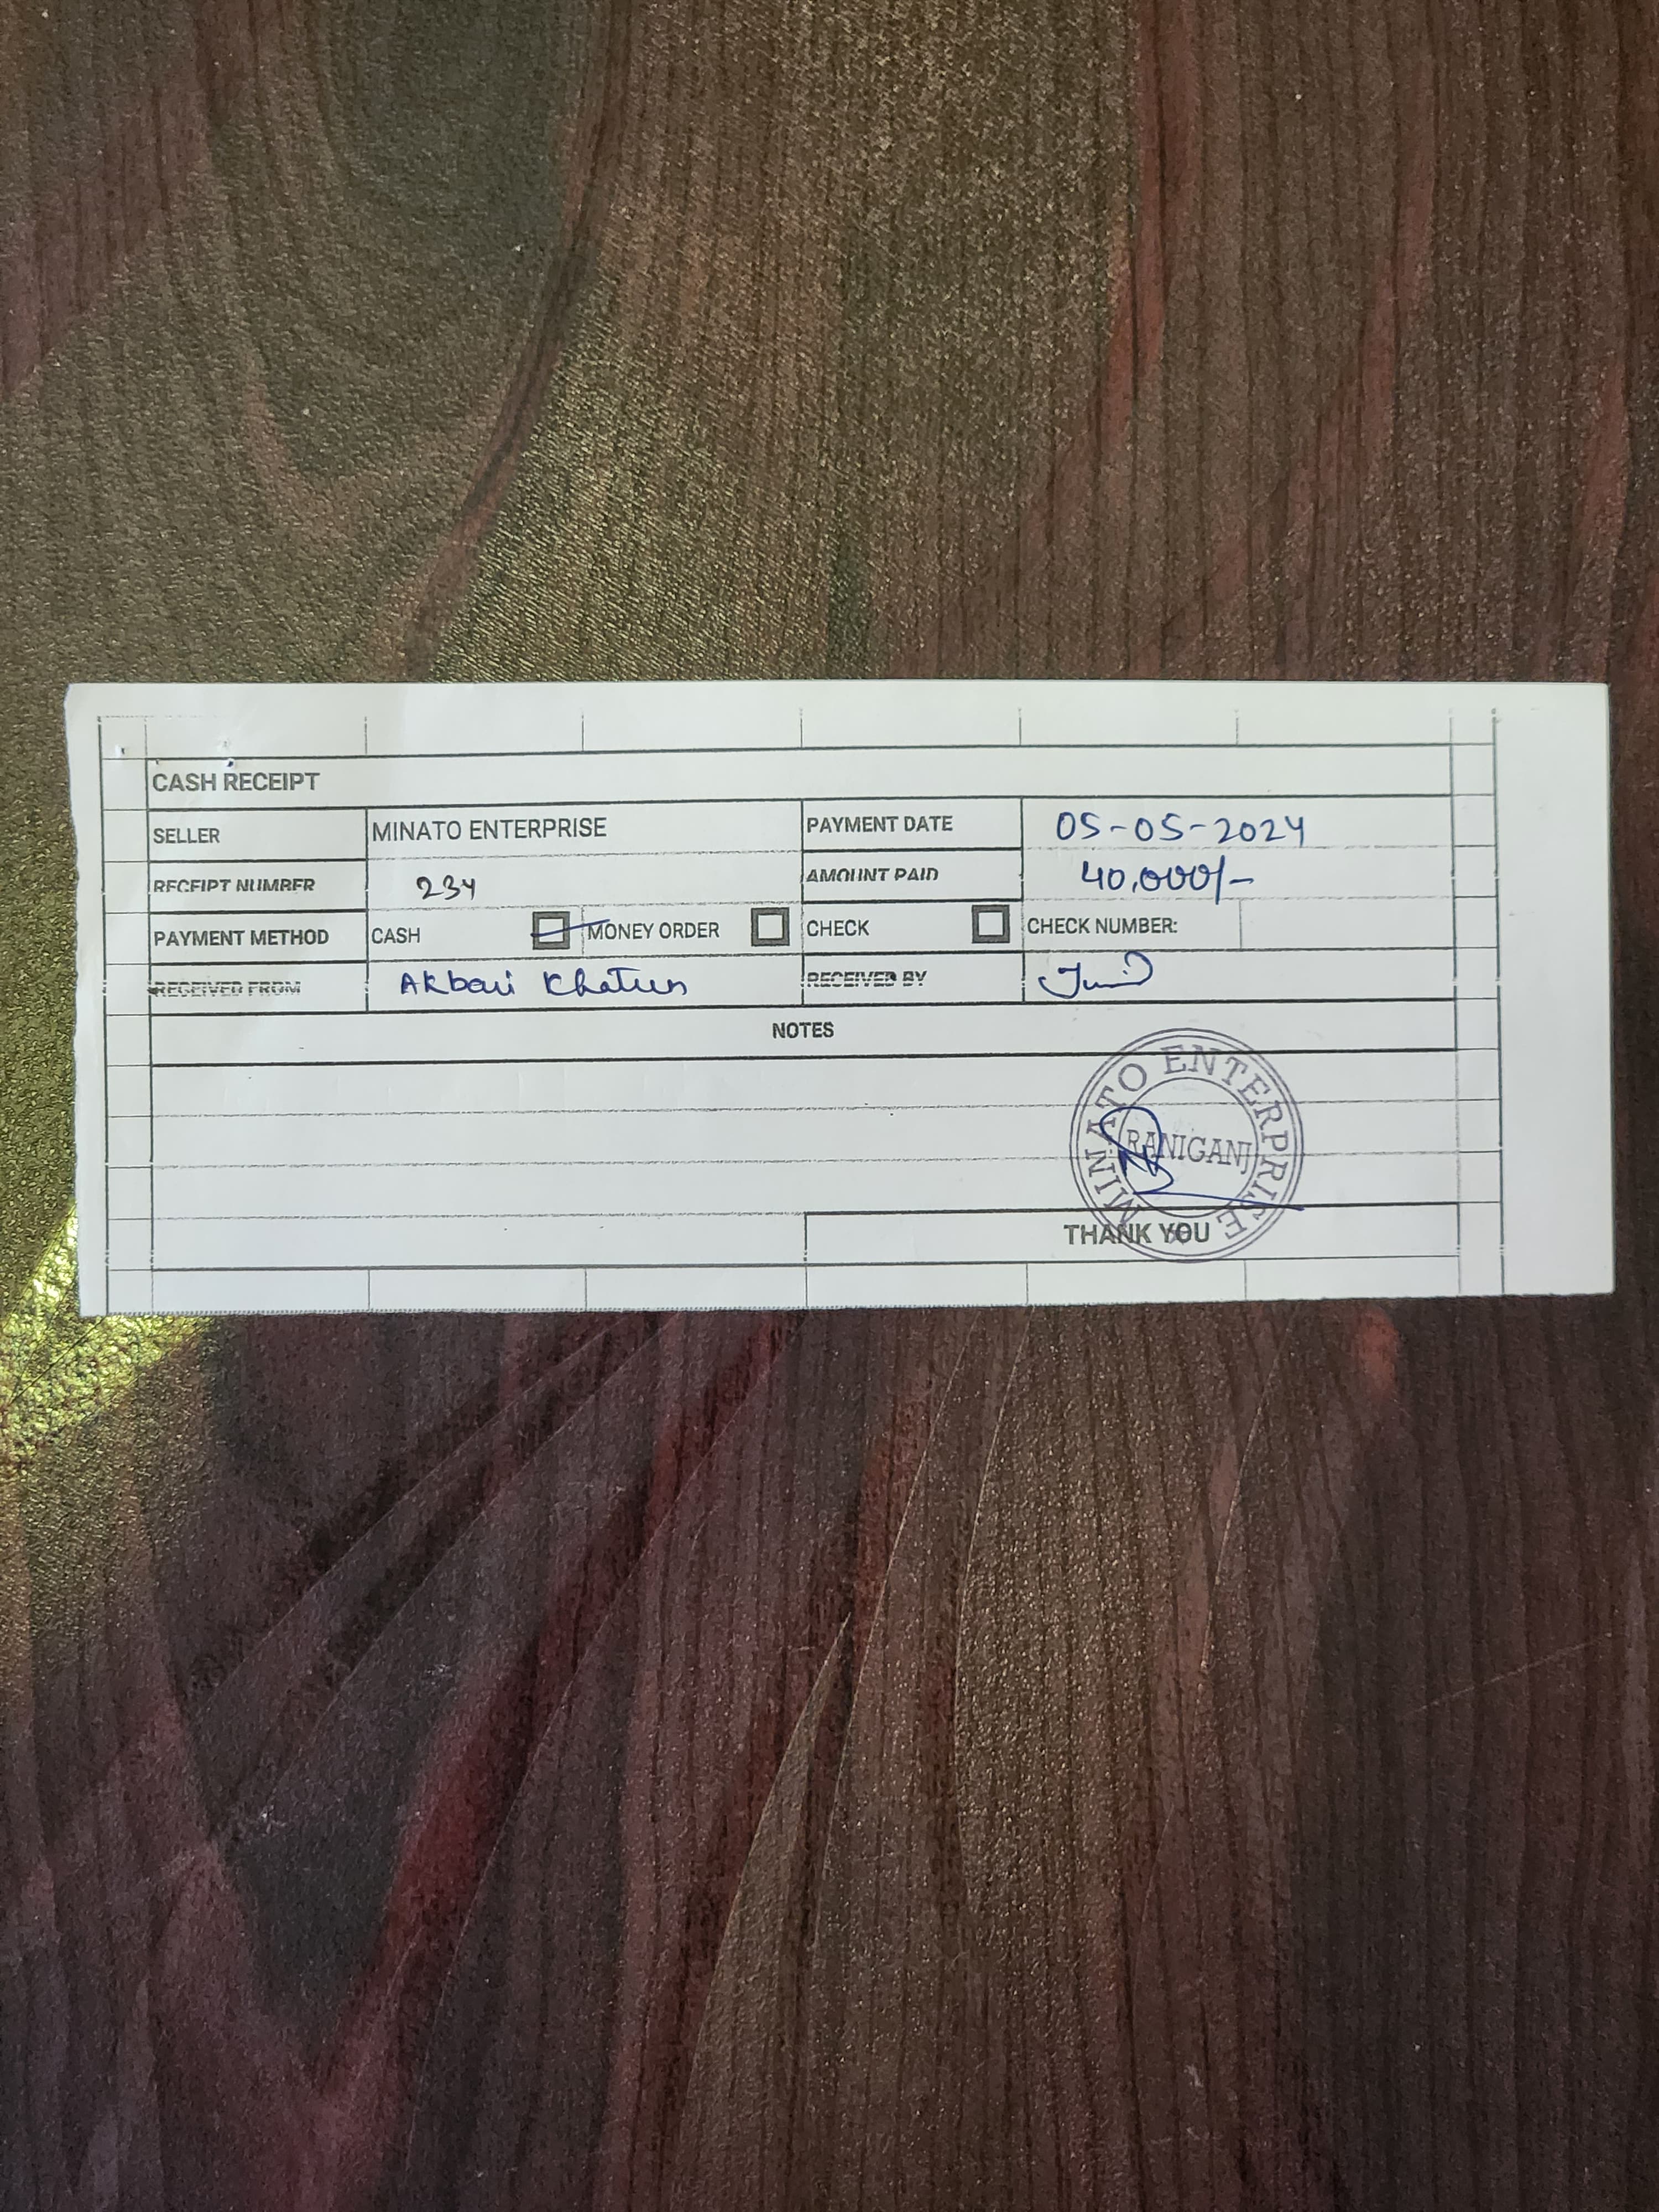 CASH RECEIPT
SELLER MINATO ENTERPRISE PAYMENT DATE 05-05-2024
RECEIPT NUMBER 234 AMOUNT PAID 40,000/-
PAYMENT METHOD CASH MONEY ORDER CHECK CHECK NUMBER:
RECEIVED FROM Akbari Khatun RECEIVED BY
NOTES
MINATO ENTERPRISE
RANIGANJ
THANK YOU